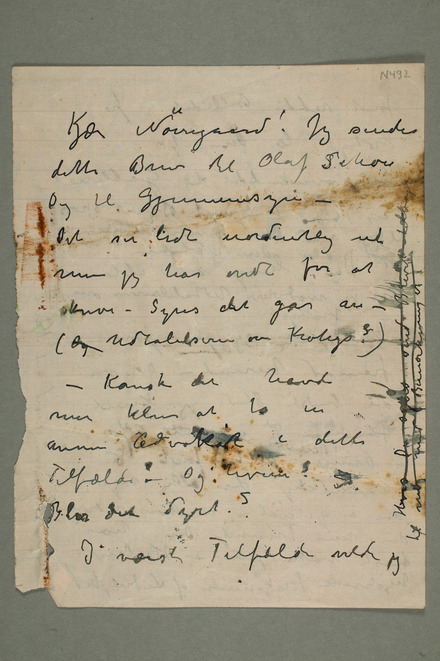 N 492
Kjær Nörregaard! Jeg sender
dette Brev til Olaf Schou
Og til Gjennemsyn –
Det ser lidt uordentlig ud
men jeg har ondt for at
skrive – Synes det går an –
(Og Udtalelserne om Krohgs?)
– Kanske det havd
mer klem at ta en
annen Advokat i dette
Tilfælde? – Og hvem?
Blir det Dyrt?
I værste Tilfælde vilde jeg